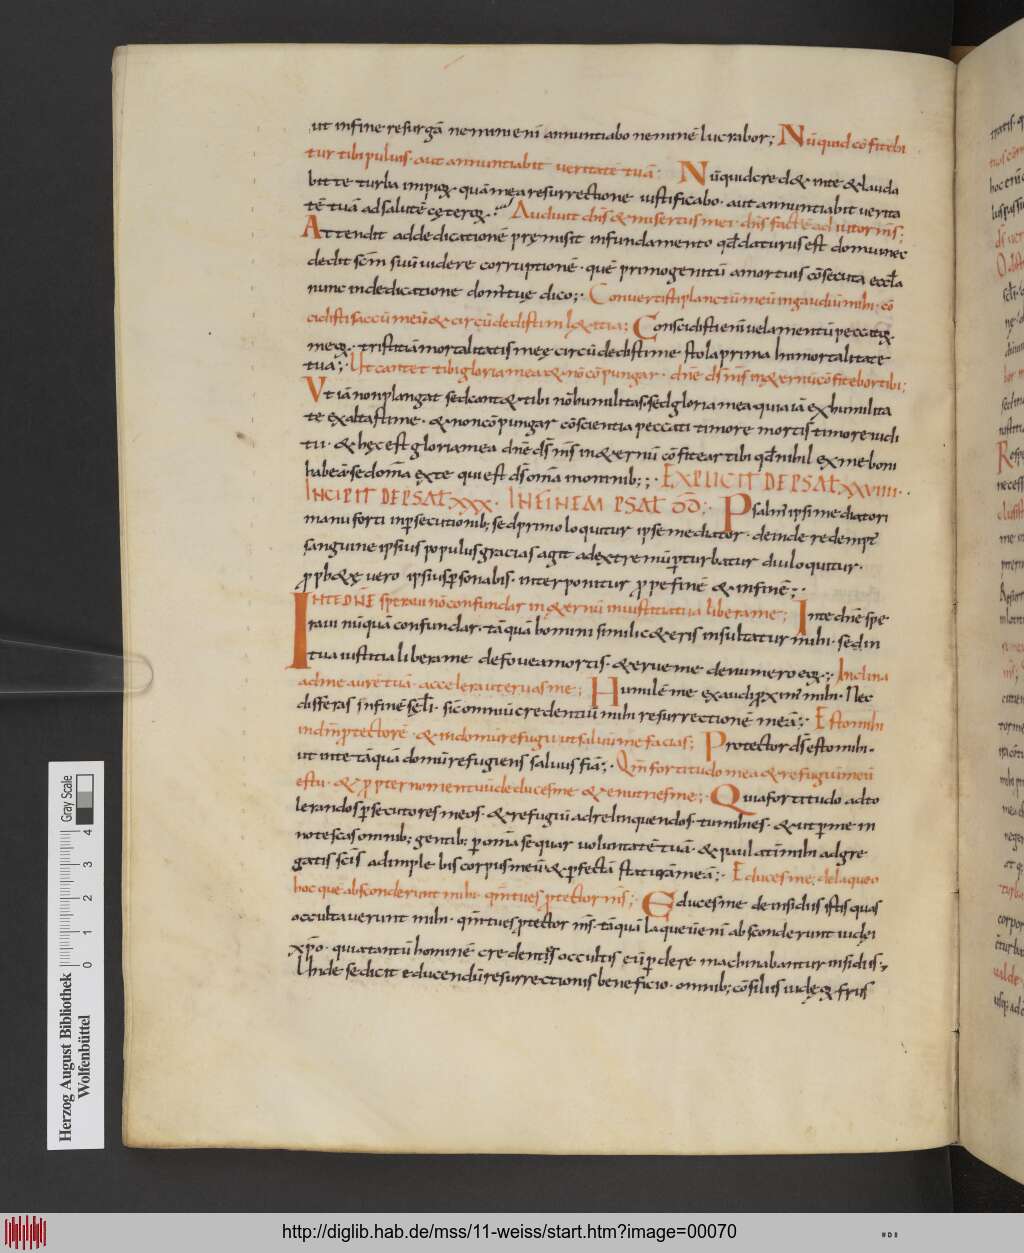 ut infine resurgā nemini enī annuntiabo neminē lucrabor; Nūquid cōfitebi
tur tibi puluis · aut annuntiabit ueritatē tuā : Nūquid cred& inte & lauda
bit te turba impioꝝ quā mea resurrectione iustificabo · aut annuntiabit uerita
tē tuā ad salutē cęteroꝝ : Audiuit dn̄s & misertus mei · dn̄s fact' ē adiutor m̄s ;
Attendit ad dedicationē pręmisit infundamento qd̄ daturus est domui nec
dedit sc̄m suū uidere corruptionē · quē primogenitū a mortuis cōsecuta ecct̄a
nunc in dedicatione dom' tuę dico ; Conuertisti planctū meū in gaudiū mihi · cō
cidisti saccū meū & circūdedisti m̄ l&itia ; Conscidisti enī uelamentū peccatoꝝ
meoꝝ · tristitiā mortalitatis meę circūdedisti me stola prima Inmortalitate
tua ; Ut cantet tibi gloria mea & nō cōpungar · dn̄e ds̄ m̄s in &ernū cōfitebor tibi ;
Vt iā non plangat sed cant& tibi nō humilitas sed gloria mea quia iā ex humilita
te exaltasti me · & non cōpungar cōscientia peccati timore mortis timore iudi
tii · & hęc est gloria mea dn̄e ds̄ m̄s in &ernū cōfitear tibi qd̄ nihil ex me boni
habeā sed om̄a ex te qui es t ds̄ om̄a in omnib; ; · EXPLICIT DE PSAL XXVIIII ·
INCIPIT DE PSAL XXX · IN FINEM PSAL DD ; Psalm' ipsi mediatori
manu forti in p̱secutionib; sed primo loquitur ipse mediator · deinde redempt'
sanguine ipsius populus gracias agit ad extremū p̱turbatur diu loquitur ·
proph&ę uero ipsius p̱sonabis · interponitur prope finē & infinē ; ·
INTE DN̄E speraui nō confundar in &ernū in iustitia tua libera me ; Inte dn̄e spe
raui nūquā confundar · tāquā homini simili c&eris insultatur mihi · sed in
tua iustitia libera me de fouea mortis · & erue me de numero eoꝝ ; · Inclina
ad me aurē tuā · accelera ut eruas me ; Humilē me exaudi p̱xim' mihi · Nec
differas infinē sęcl̄i · sic̄ omniū credentiū mihi resurrectionē meā ; · Esto mihi
in dm̄ p̱tectorē · & in domū refugii ut saluū me facias ; Protector ds̄ esto mihi ·
ut inte tāquā domū refugiens saluus fiā ; · Qm̄ fortitudo mea & refugiū meū
es tu · & propter nomen tuū deduces me & enutries me ; · Quia fortitudo ad to
lerandos p̱secutores meos · & refugiū ad relinquendos · tu mihi es · & ut p̱ me in
notescas omnib; gentib; p̱ om̄a sequar uoluntatē tuā · & paulatī mihi adgre
gatis sc̄is adimple bis corpus meū & p̱fectā staturā meā ; · Educes me de laqueo
hoc que absconderunt mihi · qm̄ tu es p̱tector m̄s ; · Educes me de insidiis istis quas
occultauerunt mihi · qm̄ tu es p̱tector m̄s · tāquā laqueū enī absconderunt iudei
xp̄o · quia tantū hominē credentes occultis eū p̱dere machinabantur insidiis ,
Unde se dicit educendū resurrectionis beneficio · omnib; cōsiliis iudęoꝝ frus
Herzog August Bibliothek
Wolfenbüttel
0 1 2 3 4 Gray Scale
http://diglib.hab.de/mss/11-weiss/start.htm?image=00070